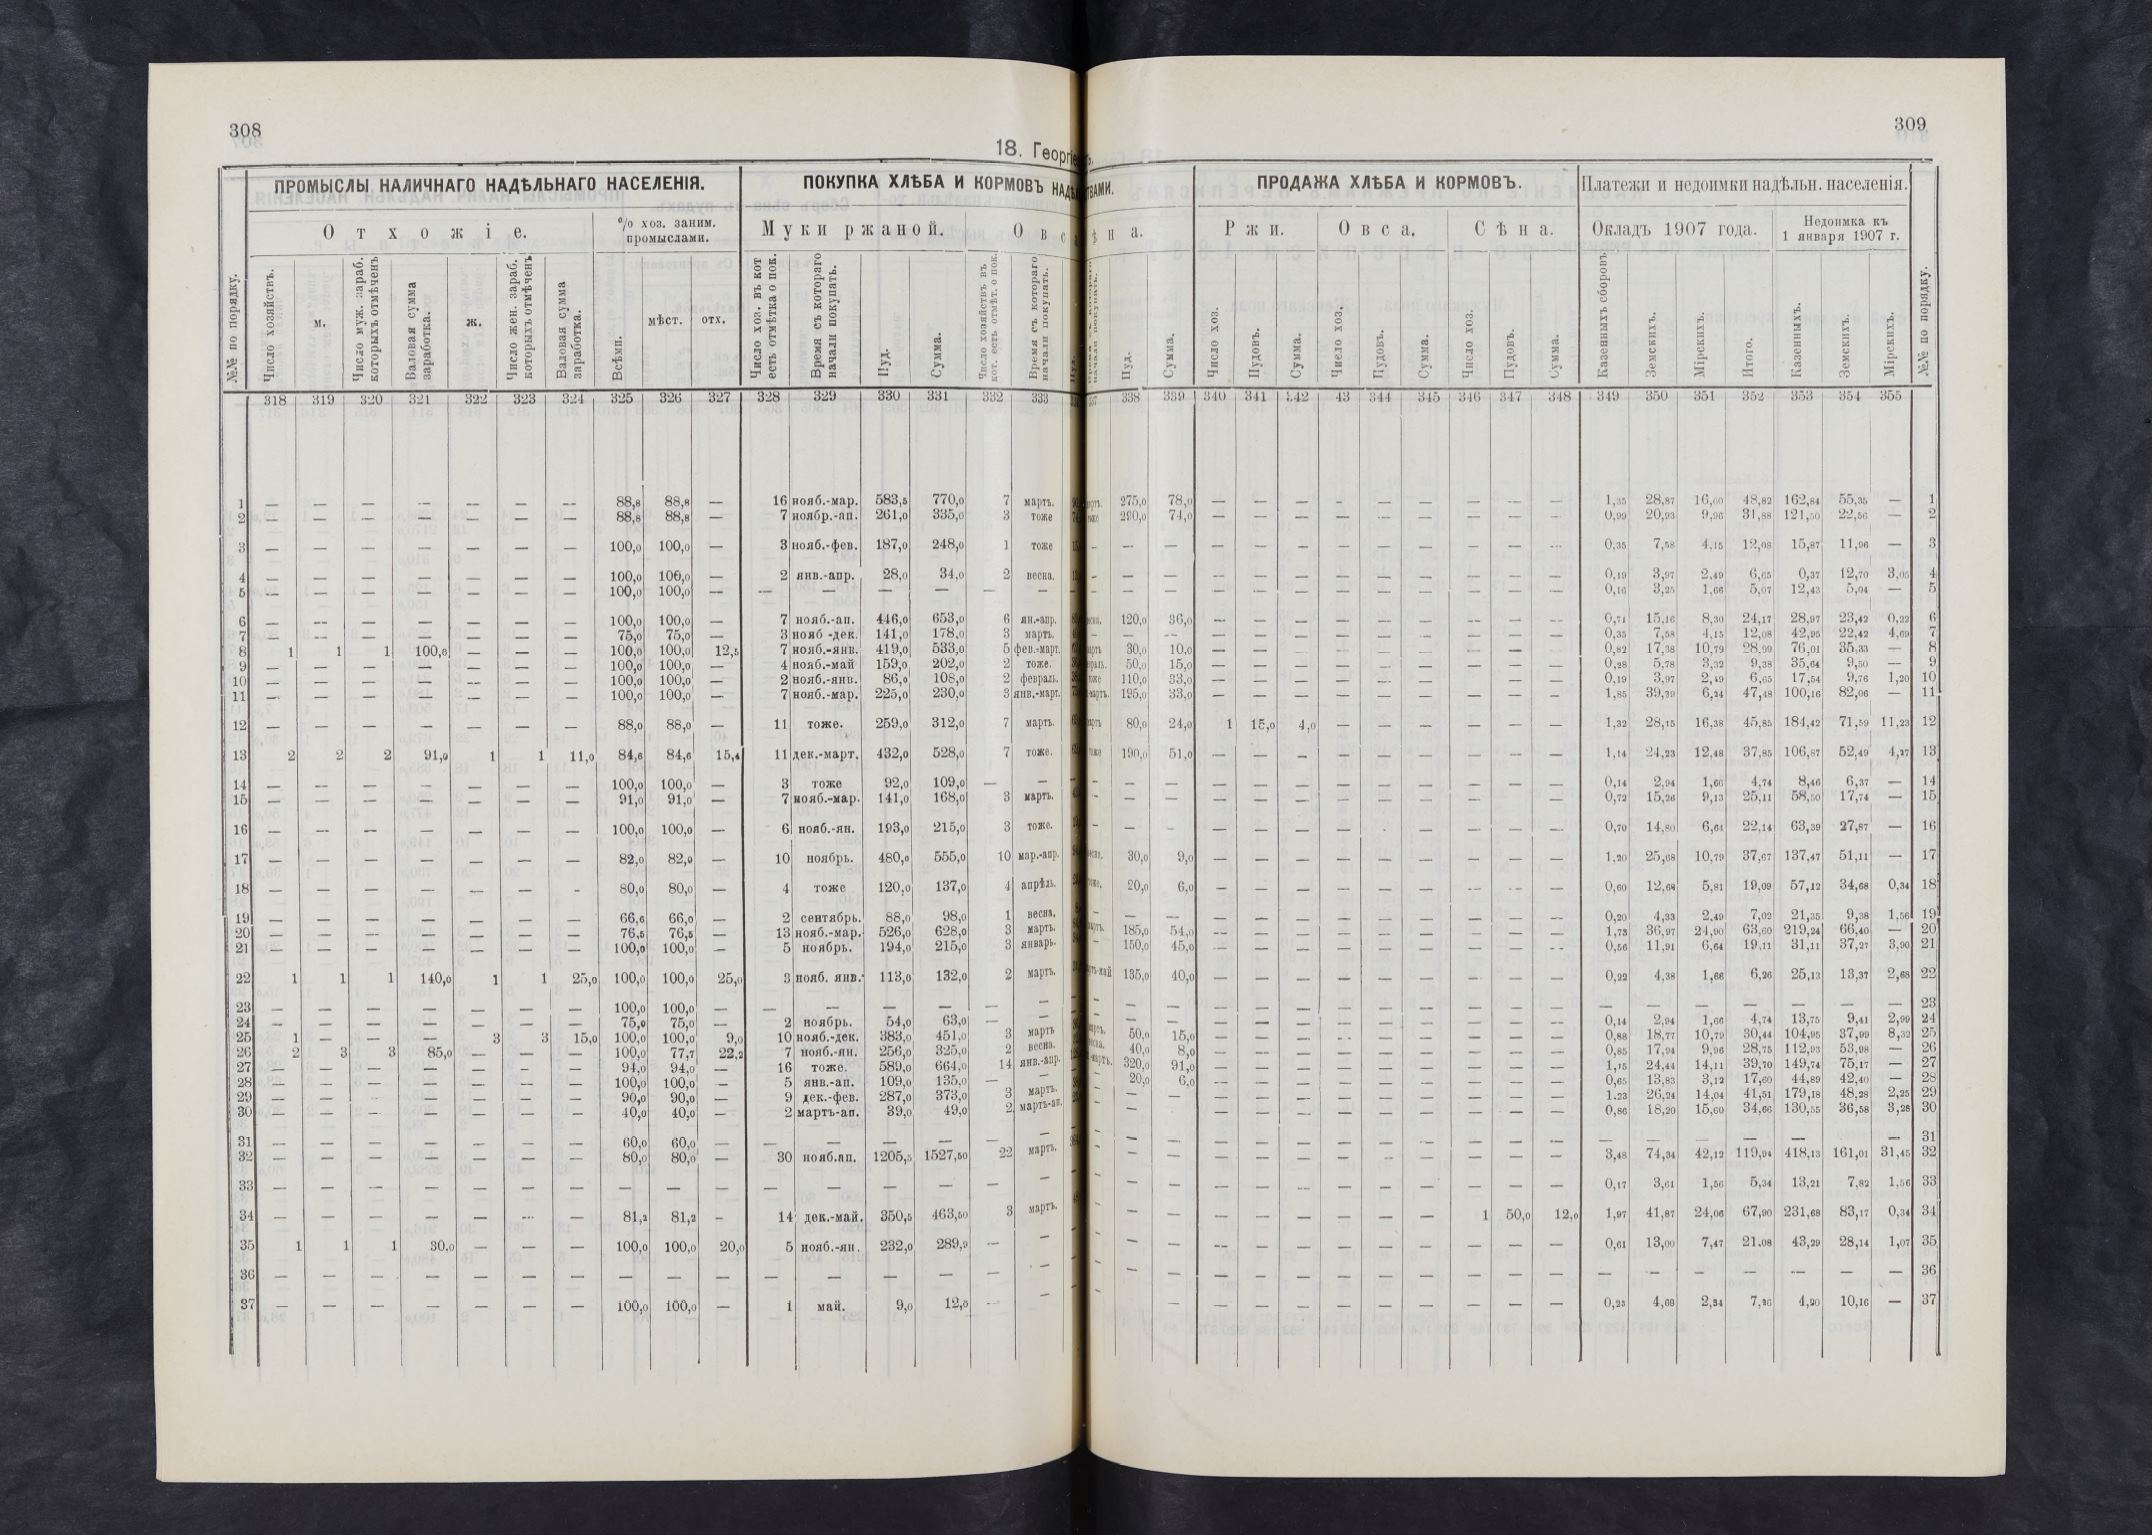 308
18. Георгіе
ПРОМЫСЛЫ НАЛИЧНАГО НАДѢЛЬНАГО НАСЕЛЕНІЯ. ПОКУПКА ХЛѢБА И КОРМОВЪ НАДѢ
Отхожіе. % хоз. заним. промыслами. Муки ржаной. Овс
№№ по порядку. Число хозяйствъ. м. Число муж. зараб. которыхъ отмѣченъ Валовая сумма заработка. ж. Число жен. зараб. которыхъ отмѣченъ Валовая сумма заработка. Всѣми. мѣст. отх. Число хоз. въ кот есть отмѣтка о пок. Время съ котораго начали покупать. Пуд. Сумма. Число хозяйствъ въ кот. есть отмѣт. о пок. Время съ котораго начали покупать.
318 319 320 321 322 323 324 325 326 327 328 329 330 331 332 333
1 — — — — — — — 88,8 88,8 — 16 нояб.-мар. 583,5 770,0 7 мартъ.
2 — — — — — — — 88,8 88,8 — 7 ноябр.-ап. 261,0 335,0 3 тоже
3 — — — — — — — 100,0 100,0 — 3 нояб.-фев. 187,0 248,0 1 тоже
4 — — — — — — — 100,0 106,0 — 2 янв.-апр. 28,0 34,0 2 весна.
5 — — — — — — — 100,0 100,0 — — — — — — —
6 — — — — — — — 100,0 100,0 — 7 нояб.-ап. 446,0 653,0 6 ян.-апр.
7 — — — — — — — 75,0 75,0 — 3 нояб -дек. 141,0 178,0 3 мартъ.
8 1 1 1 100,0 — — — 100,0 100,0 12,5 7 нояб.-янв. 419,0 533,0 5 фев.-март.
9 — — — — — — — 100,0 100,0 — 4 нояб.-май 159,0 202,0 2 тоже.
10 — — — — — — — 100,0 100,0 — 2 нояб.-янв. 86,0 108,0 2 февраль.
11 — — — — — — — 100,0 100,0 — 7 нояб.-мар. 225,0 230,0 3 янв.-март.
12 — — — — — — — 88,0 88,0 — 11 тоже. 259,0 312,0 7 мартъ.
13 2 2 2 91,0 1 1 11,0 84,6 84,6 15,4 11 дек.-март. 432,0 528,0 7 тоже.
14 — — — — — — — 100,0 100,0 — 3 тоже 92,0 109,0 — —
15 — — — — — — — 91,0 91,0 — 7 нояб.-мар. 141,0 168,0 3 мартъ.
16 — — — — — — — 100,0 100,0 — 6 нояб.-ян. 193,0 215,0 3 тоже.
17 — — — — — — — 82,0 82,0 — 10 ноябрь. 480,0 555,0 10 мар.-апр.
18 — — — — — — - 80,0 80,0 — 4 тоже 120,0 137,0 4 апрѣль.
19 — — — — — — — 66,6 66,0 — 2 сентябрь. 88,0 98,0 1 весна.
20 — — — — — — — 76,5 76,5 — 13 нояб.-мар. 526,0 628,0 3 мартъ.
21 — — — — — — — 100,0 100,0 — 5 ноябрь. 194,0 215,0 3 январь.
22 1 1 1 140,0 1 1 25,0 100,0 100,0 25,0 3 нояб. янв. 113,0 132,0 2 мартъ.
23 — — — — — — — 100,0 100,0 — — — — — — —
24 — — — — — — — 75,0 75,0 — 2 ноябрь. 54,0 63,0 — —
25 1 — — — 3 3 15,0 100,0 100,0 9,0 10 нояб.-дек. 383,0 451,0 3 мартъ
26 2 3 3 85,0 — — — 100,0 77,7 22,2 7 нояб.-ян. 256,0 325,0 2 весна.
27 — — — — — — — 94,0 94,0 — 16 тоже. 589,0 664,0 14 янв.-апр.
28 — — — — — — — 100,0 100,0 — 5 янв.-ап. 109,0 135,0 — —
29 — — — — — — — 90,0 90,0 — 9 дек.-фев. 287,0 373,0 3 мартъ.
30 — — — — — — — 40,0 40,0 — 2 мартъ-ап. 39,0 49,0 2 мартъ-ап.
31 — — — — — — — 60,0 60,0 — — — — — — —
32 — — — — — — — 80,0 80,0 — 30 нояб.ап. 1205,5 1527,50 22 мартъ.
33 — — — — — — — — — — — — — — — —
34 — — — — — — — 81,2 81,2 - 14 дек.-май. 350,5 463,50 3 мартъ.
35 1 1 1 30,0 — — — 100,0 100,0 20,0 5 нояб.-ян. 232,0 289,9 — —
36 — — — — — — — — — — — — — — — —
37 — — — — — — — 100,0 100,0 — 1 май. 9,0 12,0 — —
309
ТВАМИ. ПРОДАЖА ХЛѢБА И КОРМОВЪ. Платежи и недоимки надѣльн. населенія.
ѣна. Ржи. Овса. Сѣна. Окладъ 1907 года. Недоимка къ 1 января 1907 г.
Пуд. Сумма. Число хоз. Пудовъ. Сумма. Число хоз. Пудовъ. Сумма. Число хоз. Пудовъ. Сумма. Казенныхъ сборовъ Земскихъ. Мірскихъ. Итого. Казенныхъ. Земскихъ. Мірскихъ. №№ по порядку.
338 339 340 341 342 43 344 345 346 347 348 349 350 351 352 353 354 355
275,0 78,0 — — — — — — — — — 1,35 28,87 16,60 48,82 162,84 55,35 — 1
290,0 74,0 — — — — — — — — — 0,99 20,93 9,96 31,88 121,50 22,56 — 2
— — — — — — — — — — — 0,35 7,58 4,15 12,08 15,87 11,96 — 3
— — — — — — — — — — — 0,19 3,97 2,49 6,65 0,37 12,70 3,05 4
— — — — — — — — — — — 0,16 3,25 1,66 5,07 12,43 5,04 — 5
120,0 36,0 — — — — — — — — — 0,71 15,16 8,30 24,17 28,97 23,42 0,22 6
— — — — — — — — — — — 0,35 7,58 4,15 12,08 42,95 22,42 4,69 7
30,0 10,0 — — — — — — — — — 0,82 17,38 10,79 28,99 76,01 35,33 — 8
50,0 15,0 — — — — — — — — — 0,28 5,78 3,32 9,38 35,64 9,50 — 9
110,0 33,0 — — — — — — — — — 0,19 3,97 2,49 6,65 17,54 9,76 1,20 10
195,0 33,0 — — — — — — — — — 1,85 39,39 6,24 47,48 100,16 82,06 — 11
80,0 24,0 1 15,0 4,0 — — — — — — 1,32 28,15 16,38 45,85 184,42 71,59 11,23 12
190,0 51,0 — — — — — — — — — 1,14 24,23 12,48 37,85 106,87 52,49 4,27 13
— — — — — — — — — — — 0,14 2,94 1,66 4,74 8,46 6,37 — 14
— — — — — — — — — — — 0,72 15,26 9,13 25,11 58,50 17,74 — 15
— — — — — — — — — — — 0,70 14,80 6,64 22,14 63,39 27,87 — 16
30,0 9,0 — — — — — — — — — 1,20 25,68 10,79 37,67 137,47 51,11 — 17
20,0 6,0 — — — — — — — — — 0,60 12,68 5,81 19,09 57,12 34,68 0,34 18
— — — — — — — — — — — 0,20 4,33 2,49 7,02 21,35 9,38 1,56 19
185,0 54,0 — — — — — — — — — 1,73 36,97 24,90 63,60 219,24 66,40 — 20
150,0 45,0 — — — — — — — — — 0,56 11,91 6,64 19,11 31,11 37,27 3,90 21
135,0 40,0 — — — — — — — — — 0,22 4,38 1,66 6,26 25,13 13,37 2,68 22
— — — — — — — — — — — — — — — — — — 23
— — — — — — — — — — — 0,14 2,94 1,66 4,74 13,75 9,41 2,99 24
50,0 15,0 — — — — — — — — — 0,88 18,77 10,79 30,44 104,95 37,99 8,32 25
40,0 8,0 — — — — — — — — — 0,85 17,94 9,96 28,75 112,93 53,98 — 26
320,0 91,0 — — — — — — — — — 1,15 24,44 14,11 39,70 149,74 75,17 — 27
20,0 6,0 — — — — — — — — — 0,65 13,83 3,12 17,60 44,89 42,40 — 28
— — — — — — — — — — — 1.23 26,24 14,04 41,51 179,18 48,28 2,25 29
— — — — — — — — — — — 0,86 18,20 15,60 34,66 130,55 36,58 3,28 30
— — — — — — — — — — — — — — — — — — 31
— — — — — — — — — — — 3,48 74,34 42,12 119,94 418,13 161,01 31,45 32
— — — — — — — — — — — 0,17 3,61 1,56 5,34 13,21 7,82 1,56 33
— — — — — — — — 1 50,0 12,0 1,97 41,87 24,06 67,90 231,68 83,17 0,34 34
— — — — — — — — — — — 0,61 13,00 7,47 21.08 43,29 28,14 1,07 35
— — — — — — — — — — — — — — — — — — 36
— — — — — — — — — — — 0,23 4,69 2,34 7,26 4,20 10,16 — 37